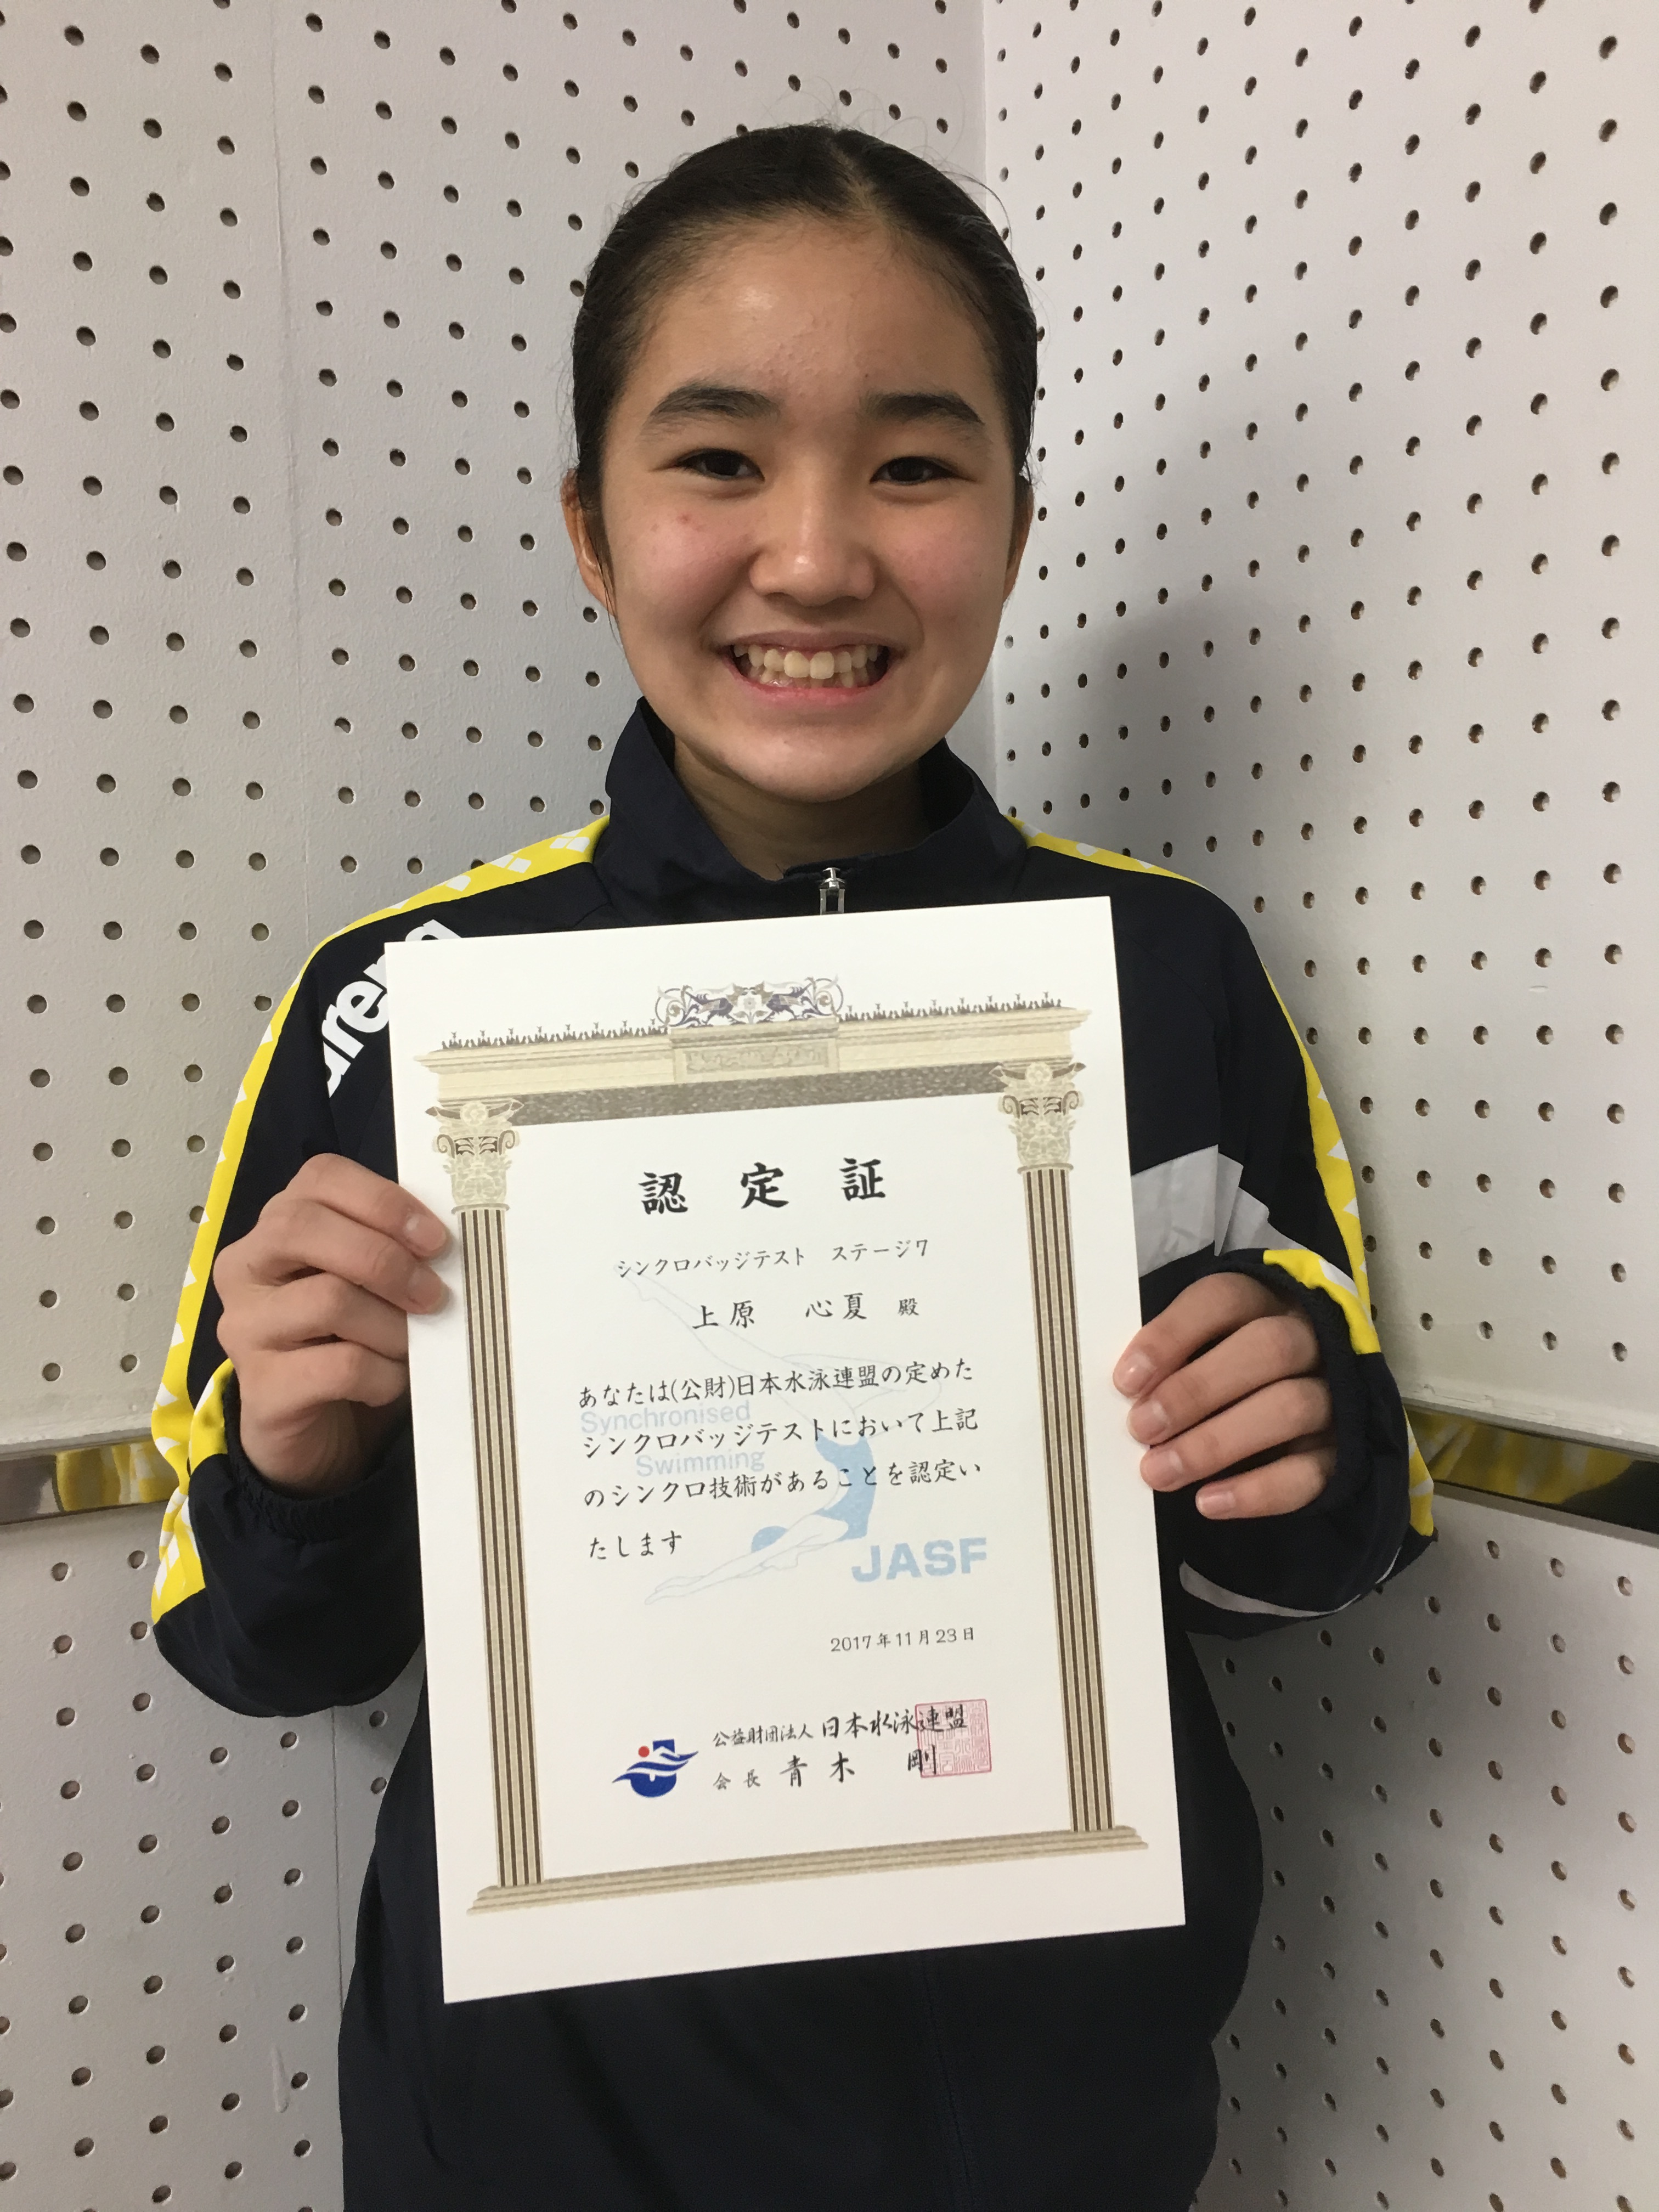 arena
認定証
シンクロバッジテスト ステージ7
上原 心夏 殿
あなたは(公財)日本水泳連盟の定めた
シンクロバッジテストにおいて上記
のシンクロ技術があることを認定い
たします
Synchronised
Swimming
JASF
2017年11月23日
公益財団法人 日本水泳連盟
会長 青木 剛